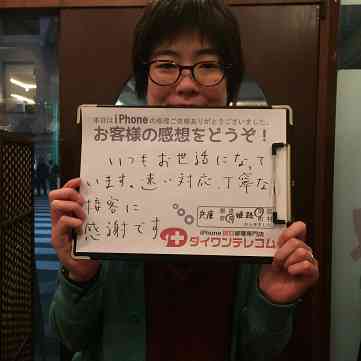 本日はiPhoneの修理ご依頼ありがとうございました。
お客様の感想をどうぞ！
いつもお世話になって
います。速い対応、丁寧な
接客に
感謝です
兵庫
姫路
iPhone 即日修理専門店
ダイワンテレコム